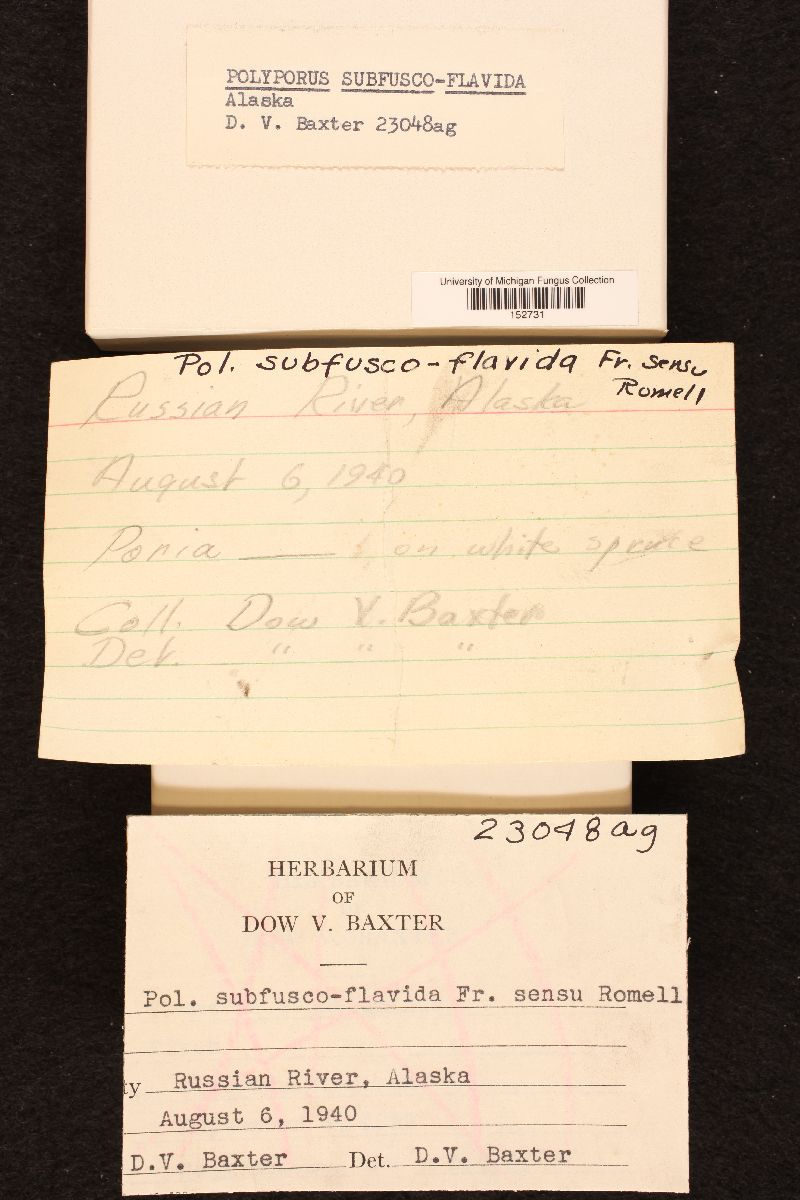 POLYPORUS SUBFUSCO-FLAVIDA
Alaska
D. V. Baxter 23048ag
University of Michigan Fungus Collection
152731
Pol. subfusco-flavida Fr. sensu
Romell
Russian River, Alaska
August 6, 1940
Poria —— on white spruce
Coll. Dow V. Baxter
Det. " " "
23048ag
HERBARIUM
OF
DOW V. BAXTER
Pol. subfusco-flavida Fr. sensu Romell
ty Russian River, Alaska
August 6, 1940
D.V. Baxter Det. D.V. Baxter